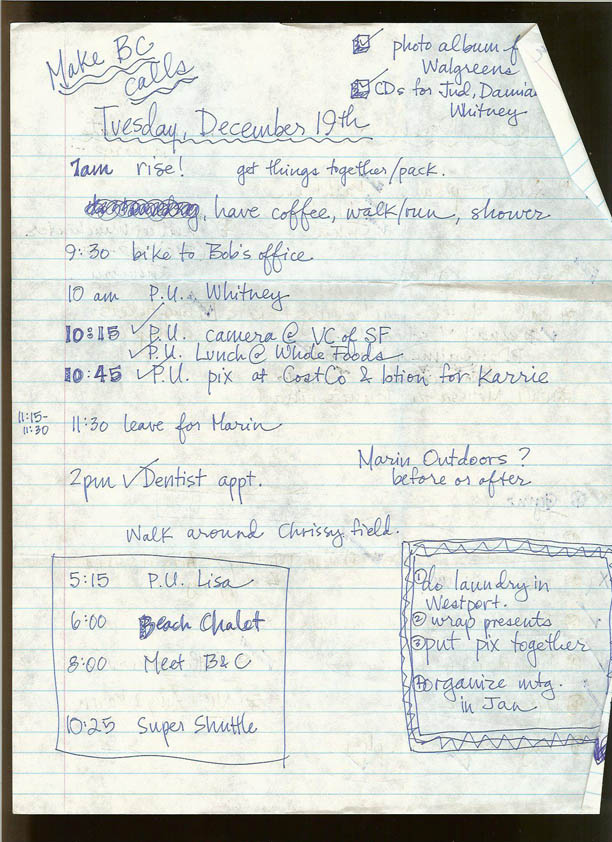 Make BC
calls
photo album f
Walgreens
CDs for Jud, Damia
Whitney
Tuesday, December 19th
7am rise! get things together/pack.
, have coffee, walk/run, shower
9:30 bike to Bob's office
10 am P.U. Whitney
10:15 P.U. camera @ VC of SF
P.U. Lunch @ Whole Foods
10:45 P.U. pix at CostCo & lotion for Karrie
11:15-
11:30
11:30 leave for Marin
2pm Dentist appt.
Marin Outdoors?
before or after
Walk around Chrissy field.
5:15 P.U. Lisa
6:00 Beach Chalet
8:00 Meet B&C
10:25 Super Shuttle
① do laundry in
Westport.
② wrap presents
③ put pix together
④ organize mtg.
in Jan